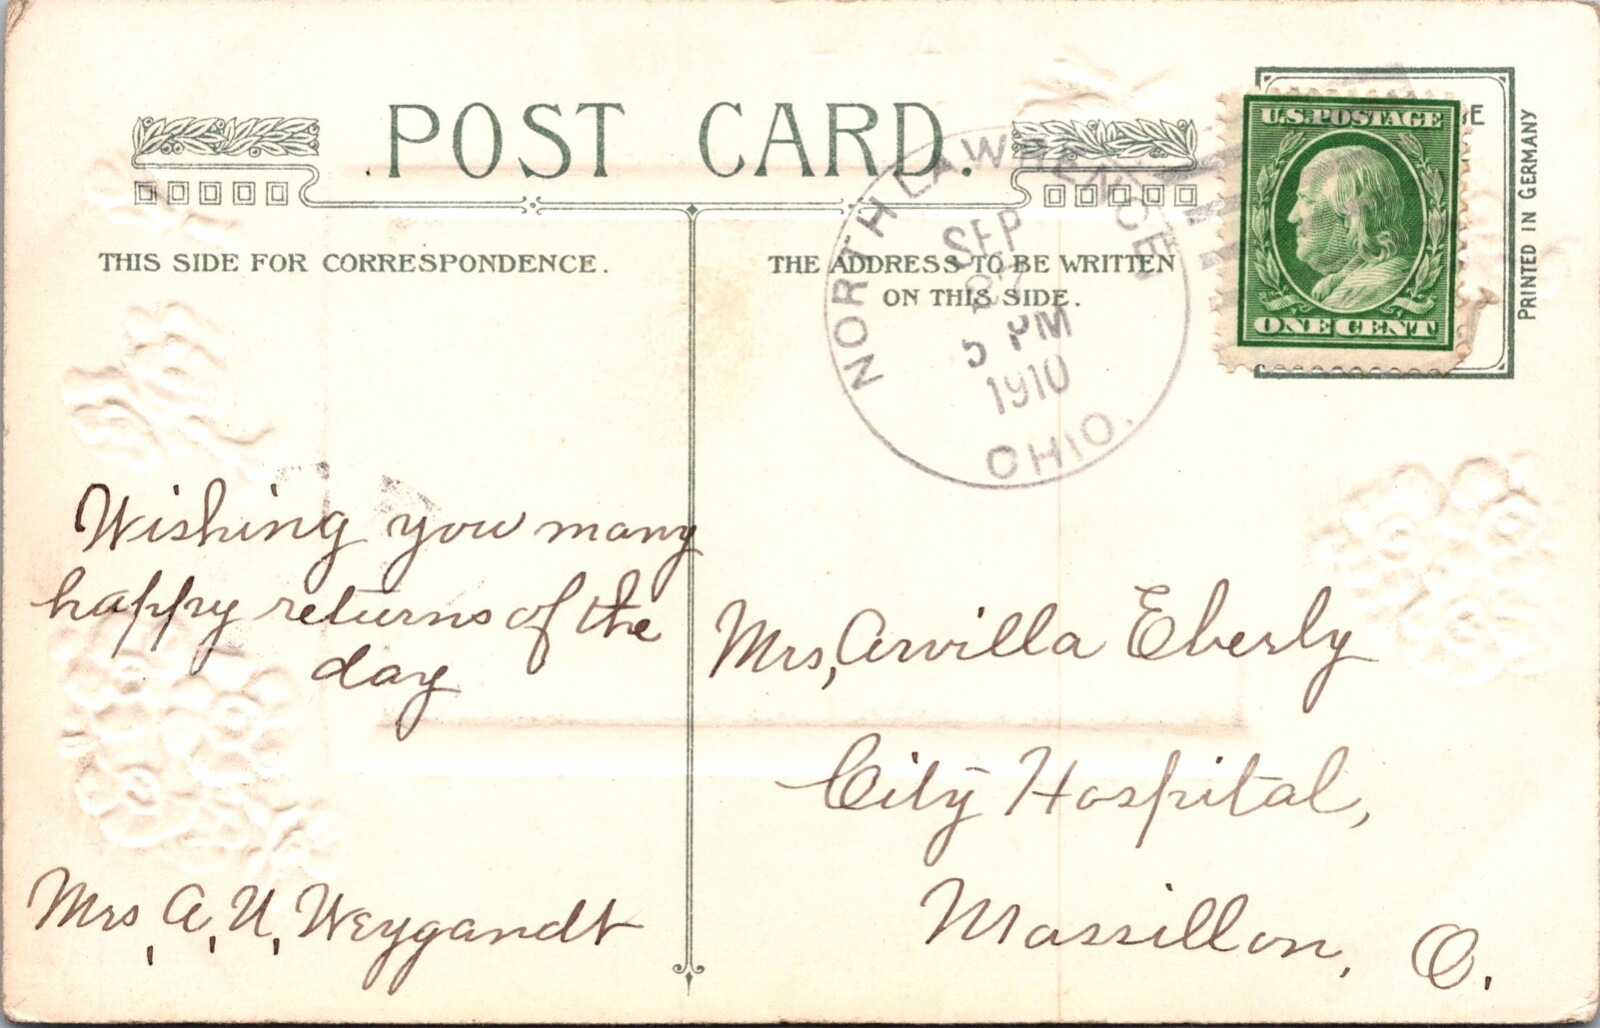 POST CARD.
THIS SIDE FOR CORRESPONDENCE.
THE ADDRESS TO BE WRITTEN
ON THIS SIDE.
NORTH LAWRENCE
SEP
5 PM
1910
OHIO.
U.S. POSTAGE
ONE CENT
PRINTED IN GERMANY
Wishing you many
happy returns of the
day
Mrs, A, U, Weygandt
Mrs, Arvilla Eberly
City Hospital,
Massillon, O.